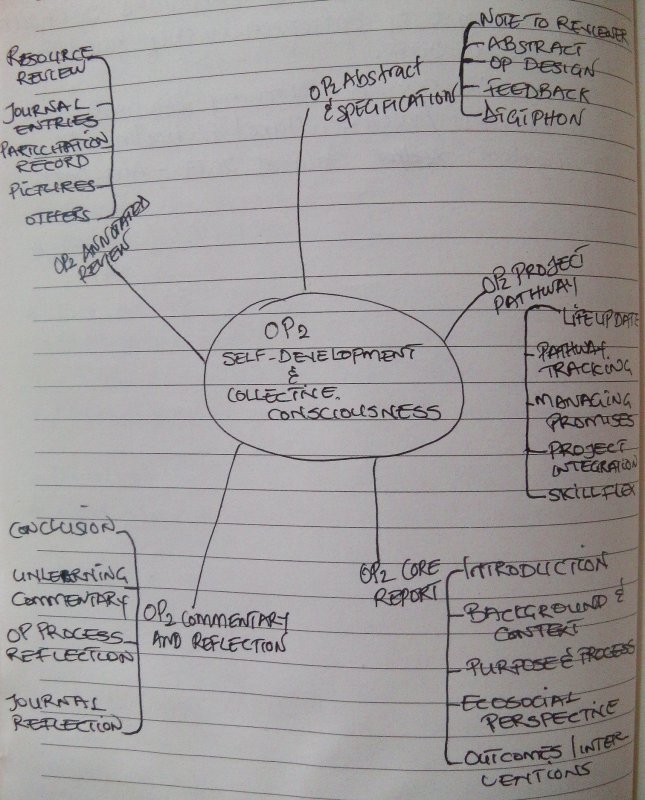 OP2
SELF-DEVELOPMENT
&
COLLECTIVE
CONSCIOUSNESS
OP2 Abstract
& SPECIFICATION
NOTE TO REVIEWER
ABSTRACT
OP DESIGN
FEEDBACK
DIGIPHON
OP2 PROJECT
PATHWAY
LIFE UPDATE
PATHWAY
TRACKING
MANAGING
PROMISES
PROJECT
INTEGRATION
SKILLFLEX
OP2 CORE
REPORT
INTRODUCTION
BACKGROUND &
CONTEXT
PURPOSE & PROCESS
ECOSOCIAL
PERSPECTIVE
OUTCOMES / INTER-
VENTIONS
OP2 COMMENTARY
AND REFLECTION
CONCLUSION
UNLEARNING
COMMENTARY
OP PROCESS
REFLECTION
JOURNAL
REFLECTION
OP2 ANNOTATED
REVIEW
RESOURCE
REVIEW
JOURNAL
ENTRIES
PARTICIPATION
RECORD
PICTURES
OTHERS